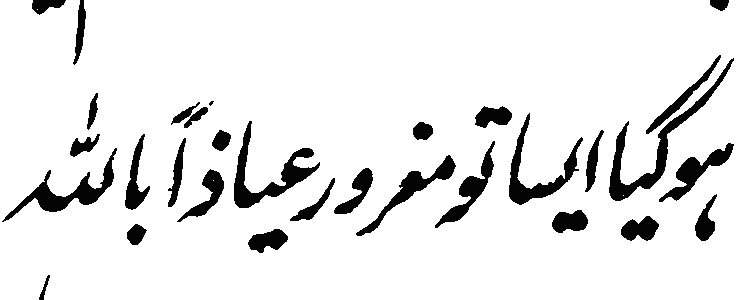 ہو گیا ایسا تو مغرور عیاذاً باللہ